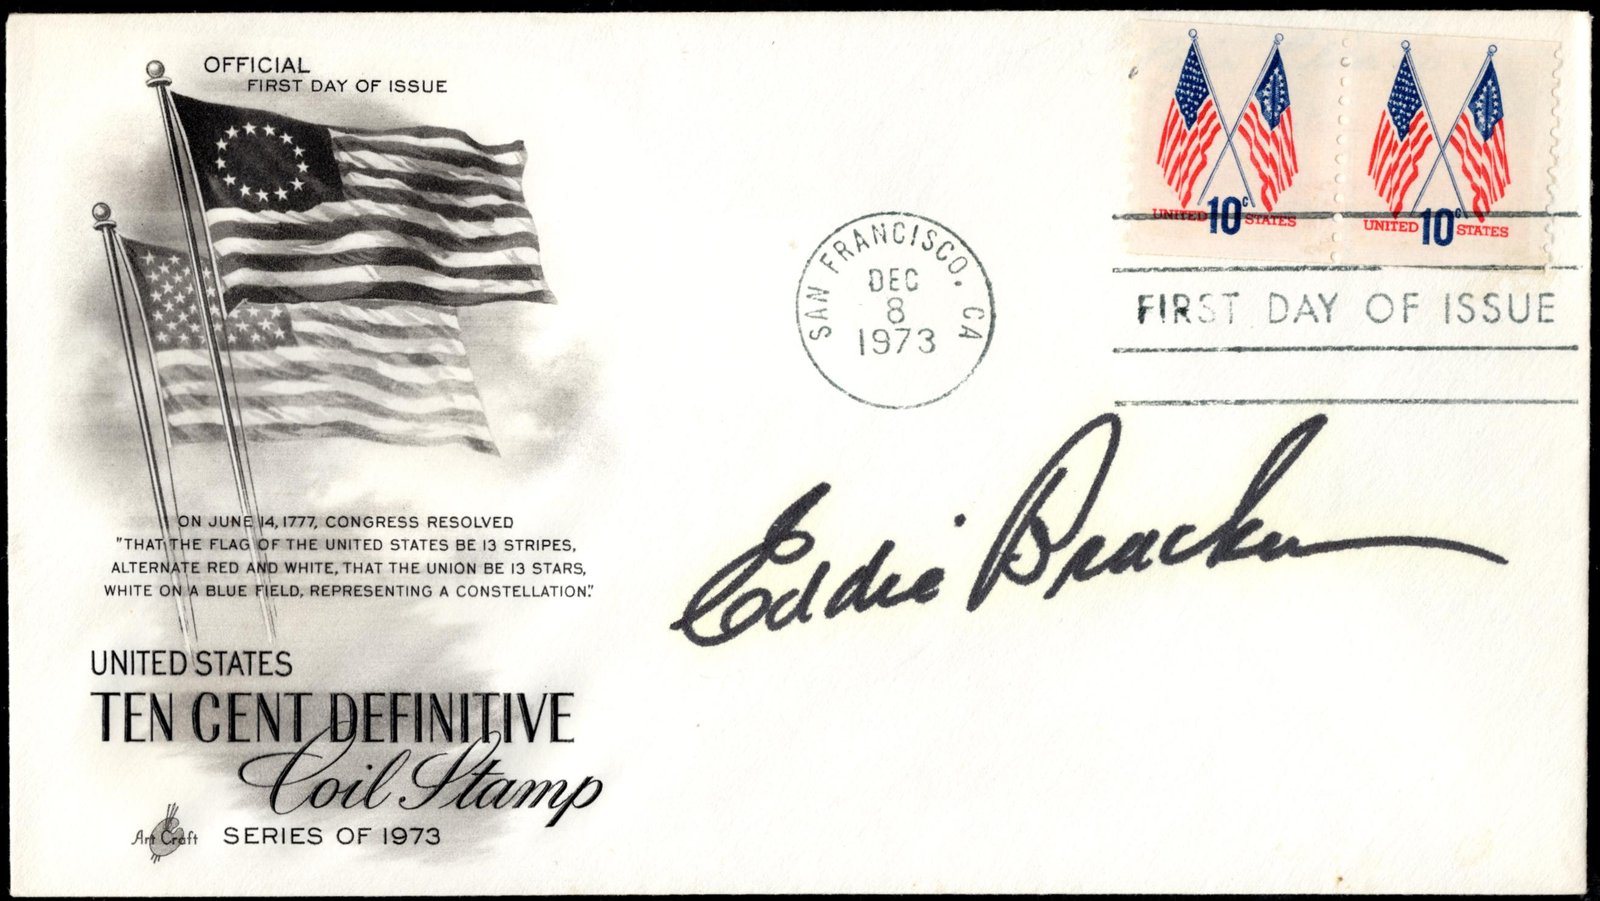 OFFICIAL
FIRST DAY OF ISSUE
ON JUNE 14, 1777, CONGRESS RESOLVED
"THAT THE FLAG OF THE UNITED STATES BE 13 STRIPES,
ALTERNATE RED AND WHITE, THAT THE UNION BE 13 STARS,
WHITE ON A BLUE FIELD, REPRESENTING A CONSTELLATION."
UNITED STATES
TEN CENT DEFINITIVE
Coil Stamp
Art Craft SERIES OF 1973
SAN FRANCISCO, CA
DEC
8
1973
UNITED 10c STATES
UNITED 10c STATES
FIRST DAY OF ISSUE
Eddie Bracken